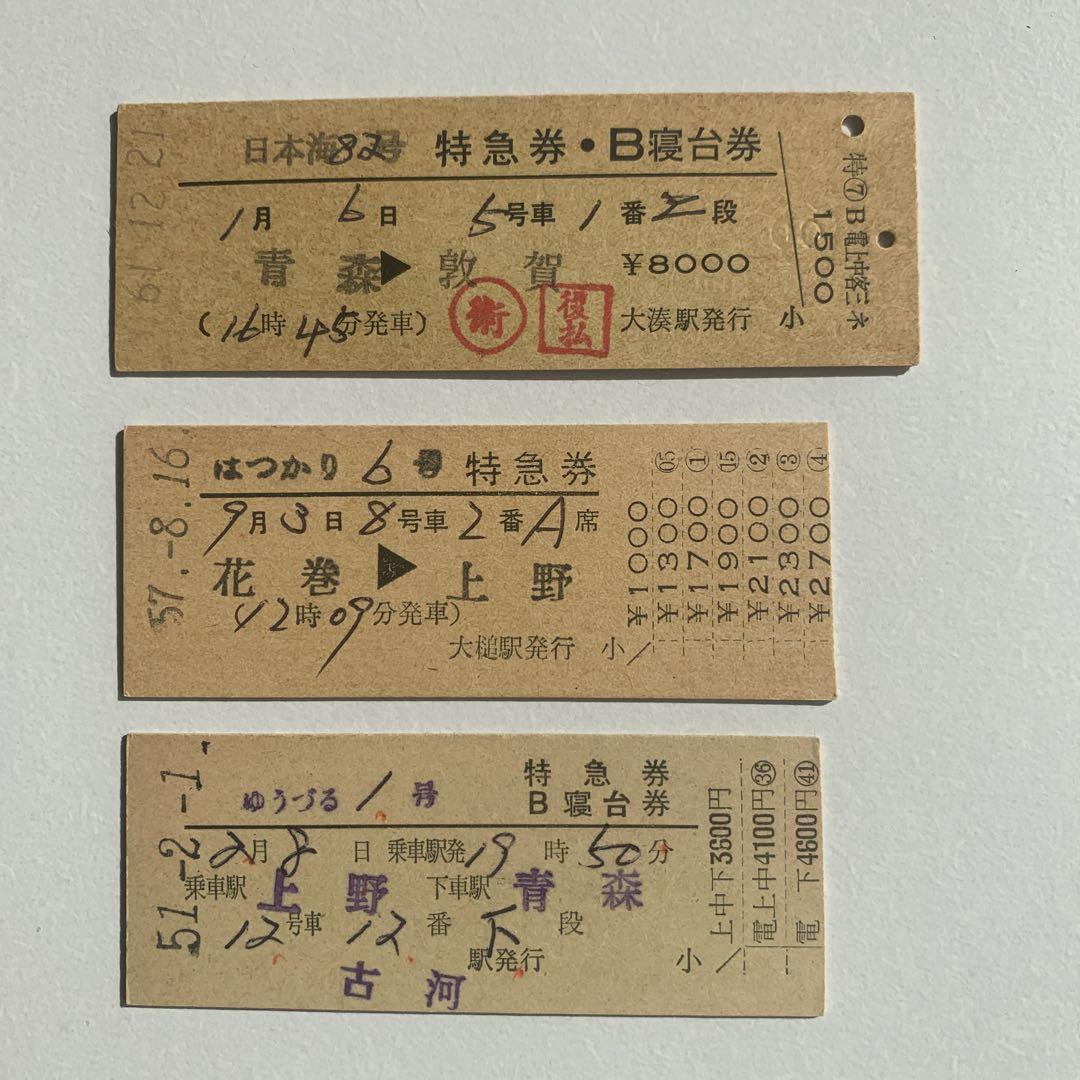 61.12.21
日本海82号 特急券・B寝台券
1月 6日 5号車 1番 上段
青森▶敦賀 ¥8000
(16時45分発車) 復払 大湊駅発行 小
特⑦B電上中客三ネ
1500
57.-8.16.
はつかり 6号 特急券
9月3日8号車2番A席
花巻▶上野
(12時09分発車)
大槌駅発行 小
¥1000
¥1300 05
¥1700 ①
¥1900 ⑮
¥2100 ②
¥2300 ③
¥2700 ④
51-2-1.
ゆうづる 1号 特急券
B寝台券
2月8日 乗車駅発 19時50分
乗車駅 上野 下車駅 青森
12号車 12番 下段
駅発行 小
古河
上中下3600円
電上中4100円㊱
電 下4600円㊶